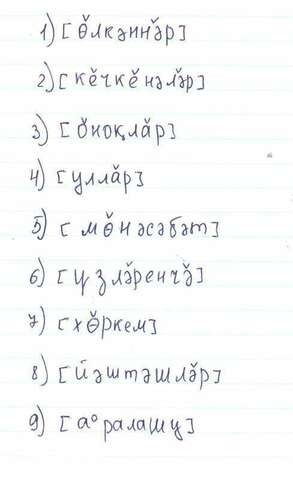 1) [ө̆лкәннә̆р]
2) [кĕчкĕнәлә̆р]
3) [о̆ноқлăр]
4) [уллăр]
5) [мө̆нәсәбәт]
6) [үзлә̆ренчә̆]
7) [хө̆ркем]
8) [йәштәшлә̆р]
9) [а°ралашу]